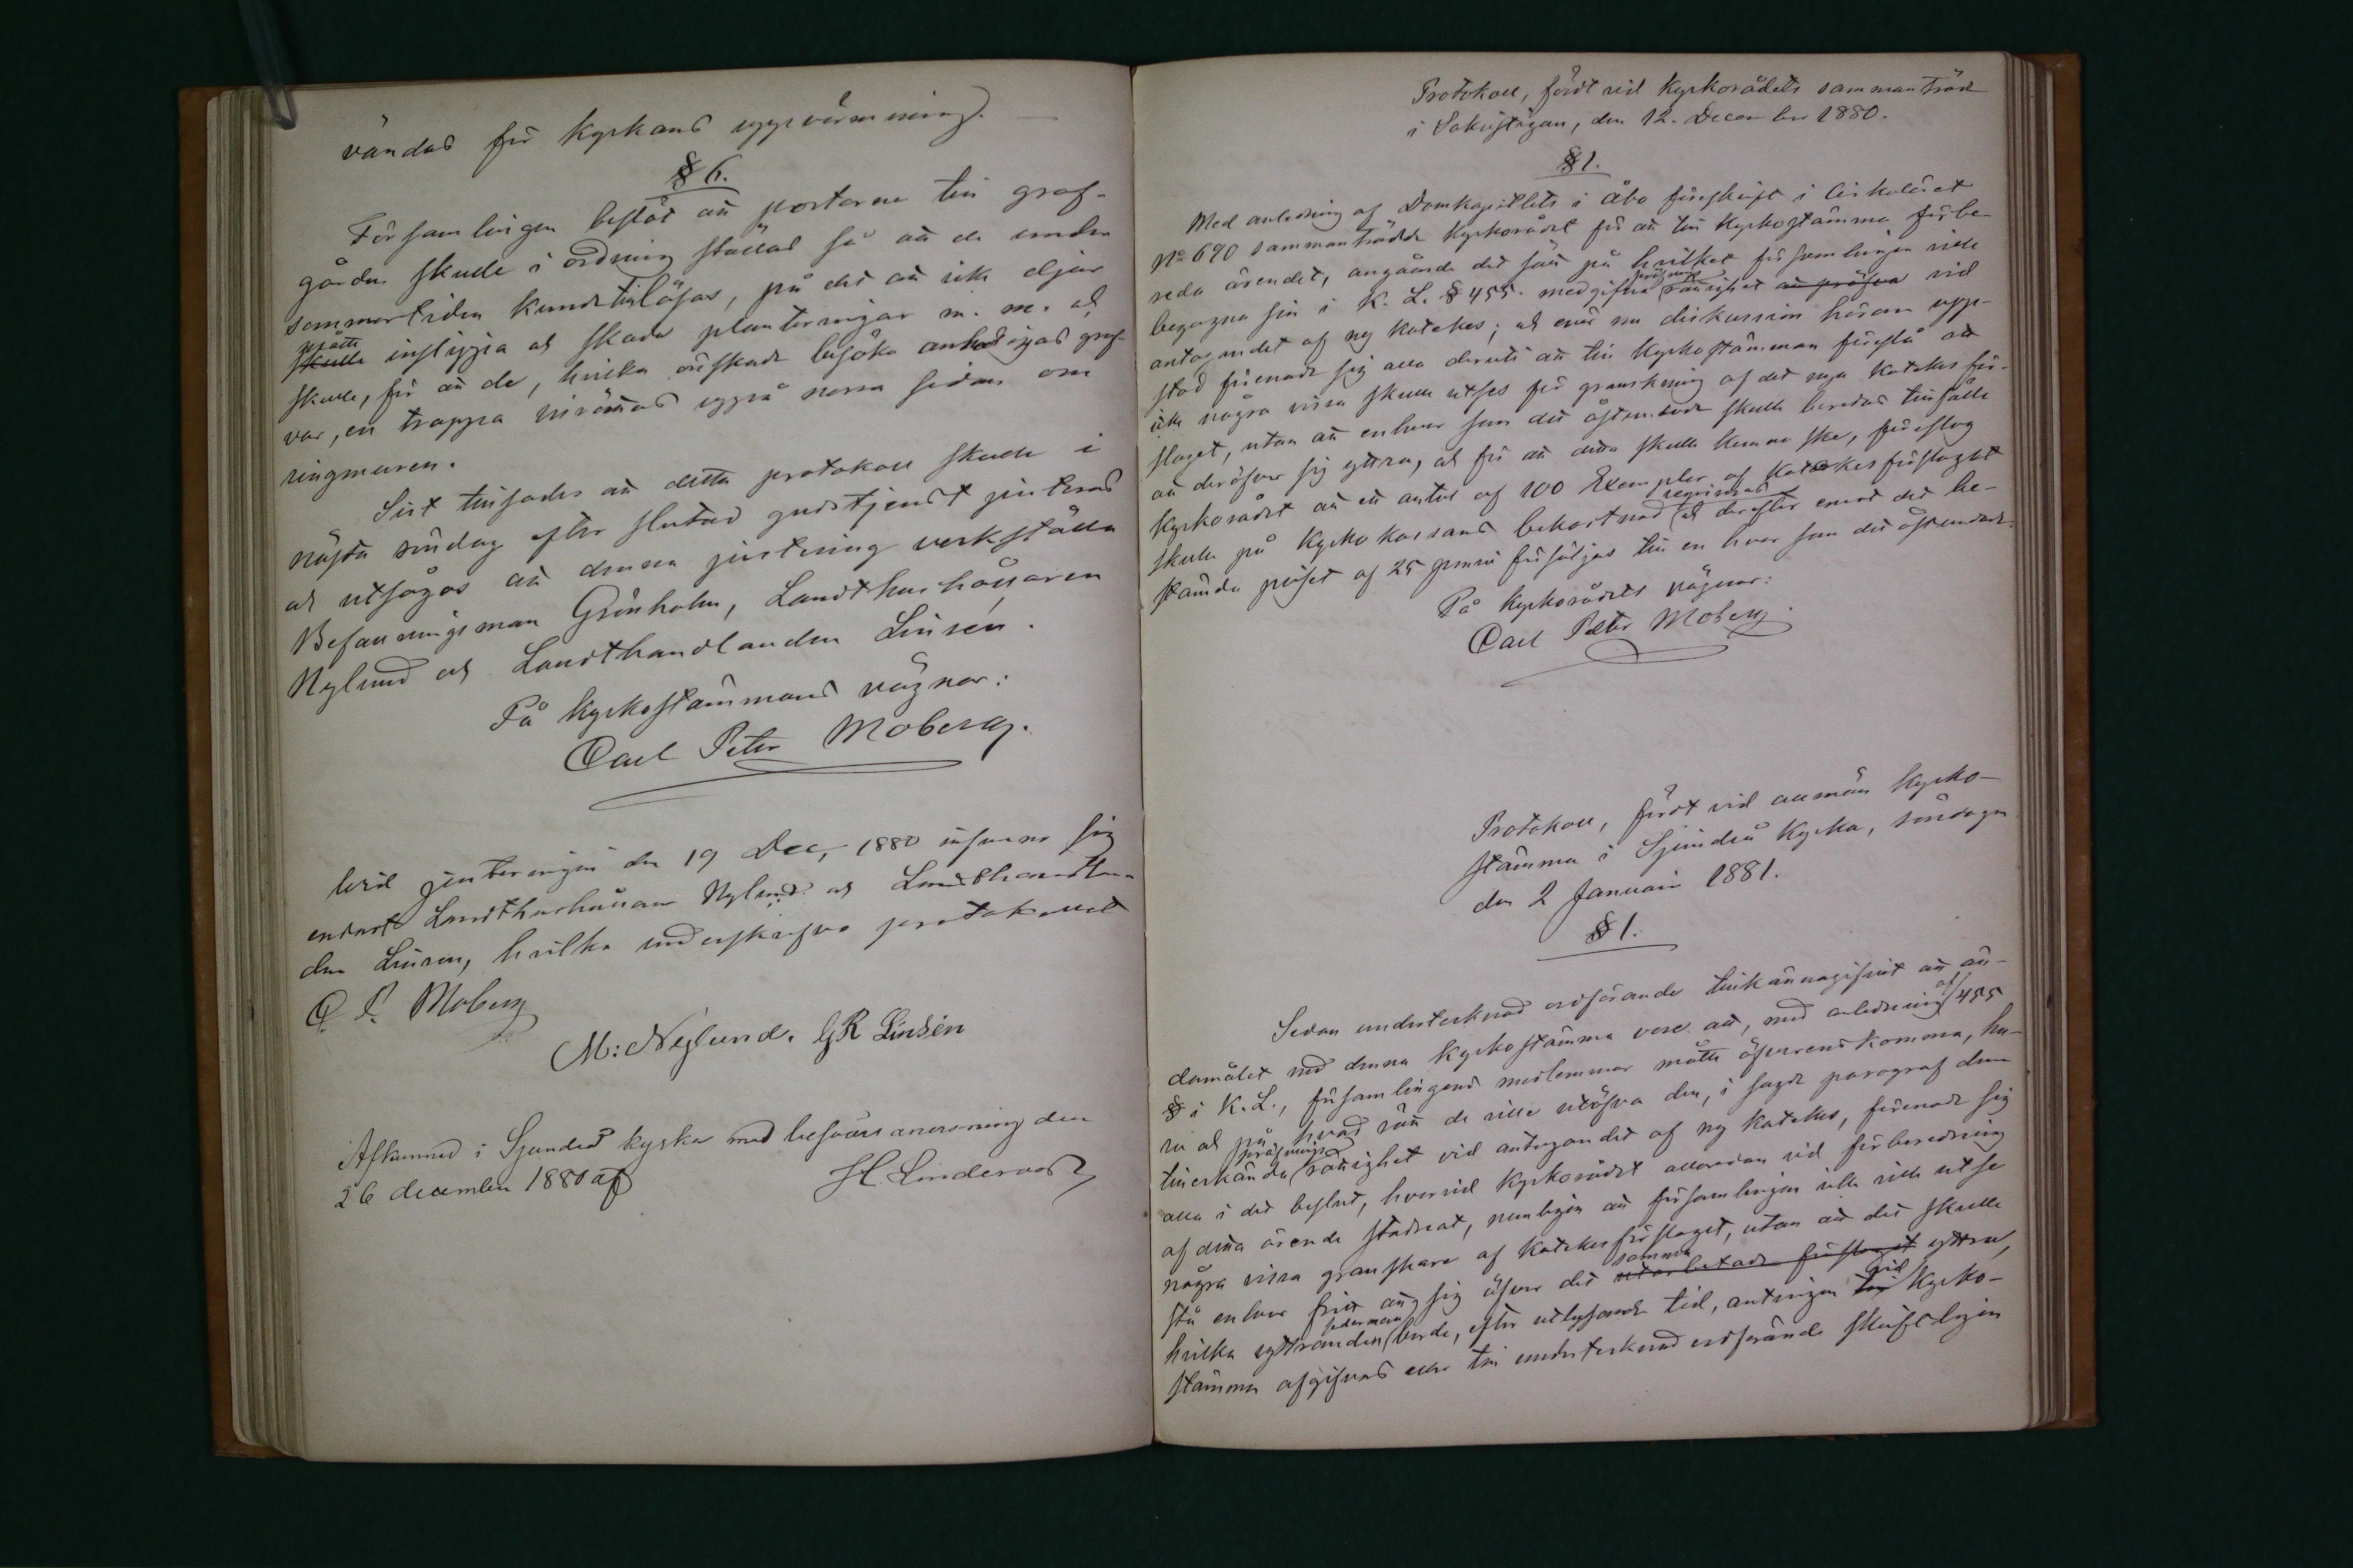 vändas för kyrkans uppvärmning.
§ 6.
Församlingen beslöt att portarne till graf-
gården skulle i ordning ställas så att de under
sommartiden kunde tillåsas, på det att icke djur
måtte
skulle inslippa och skada planteringar m. m. och
skulle, för att de, hvilka önskade besöka anhörigas graf-
var, en trappa inrättas uppå norra sidan om
ringmuren.
Sist tillsades att detta protokoll skulle i
nästa söndag efter slutad gudstjenst justeras
och utsågos att denna justering verkställa
Befallningsman Grönholm, Landthushållaren
Nylund och Landthandlanden Linsén.
På kyrkostämmans vägnar:
Carl Peter Moberg.
Vid justeringen den 19 Dec. 1880 infunno sig
endast Landthushållaren Nylund och Landthandlan-
den Linsen, hvilka underskrifva protokollet
C. P. Moberg
M: Nylund. GR Linsén
Afkunnad i Sjundeå kyrka med besvärsanvisning den
26 december 1880 af H. Lindervall
Protokoll, fördt vid Kyrkorådets sammanträde
i Sakristigan, den 12. December 1880.
§ 1.
Med anledning af Domkapitlets i Åbo föreskrift i Cirkuläret
No 690 sammanträdde Kyrkorådet för att till Kyrkostämma förbe-
reda ärendet, angående det sätt på hvilket församlingen ville
begagna sin i K. L. § 455. medgifna pröfnings rättighet att pröfva vid
antagandet af ny katekes; och enär nu diskussion härom upp-
stod förenade sig alla deruti att till Kyrkostämman föreslå att
icke några vissa skulle utses för granskning af det nya katekes för-
slaget, utan att enhvar som det åstundade skulle beredas tillfälle
att deröfver sig yttra, och för att detta skulle kunna ske, föreslog
Kyrkorådet att ett antal af 100 Exemplar af katekesförslaget
skulle på kyrkokassans bekostnad reqvireras och derefter emot det be-
stämda priset af 25 penni försäljas till en hvar som det åstundade.
På Kyrkorådets vägnar:
Carl Peter Moberg.
Protokoll, fördt vid allmän Kyrko-
stämma i Sjundeå Kyrka, söndagen
den 2 Januari 1881.
§ 1.
Sedan undertecknad ordförande tillkännagifvit att än-
damålet med denna Kyrkostämma vore att, med anledning af 455
§ i K. L., församlingens medlemmar måtte öfverenskomma, hu-
ru och på hvad sätt de ville utöfva den, i sagde paragraf dem
tillerkända pröfnings rättighet vid antagandet af ny katekes, förenade sig
alla i det beslut, hvarvid Kyrkorådet allaredan vid förberedning
af detta ärende stadnat, nemligen att församlingen icke ville utse
några vissa granskare af katekesförslaget, utan att det skulle
stå enhvar fritt att sig öfver det samma utarbetade förslaget yttra,
hvilka yttranden sedermera borde, efter utlysande tid, antingen till vid Kyrko-
stämma afgifvas eller till undertecknad ordförande skriftligen